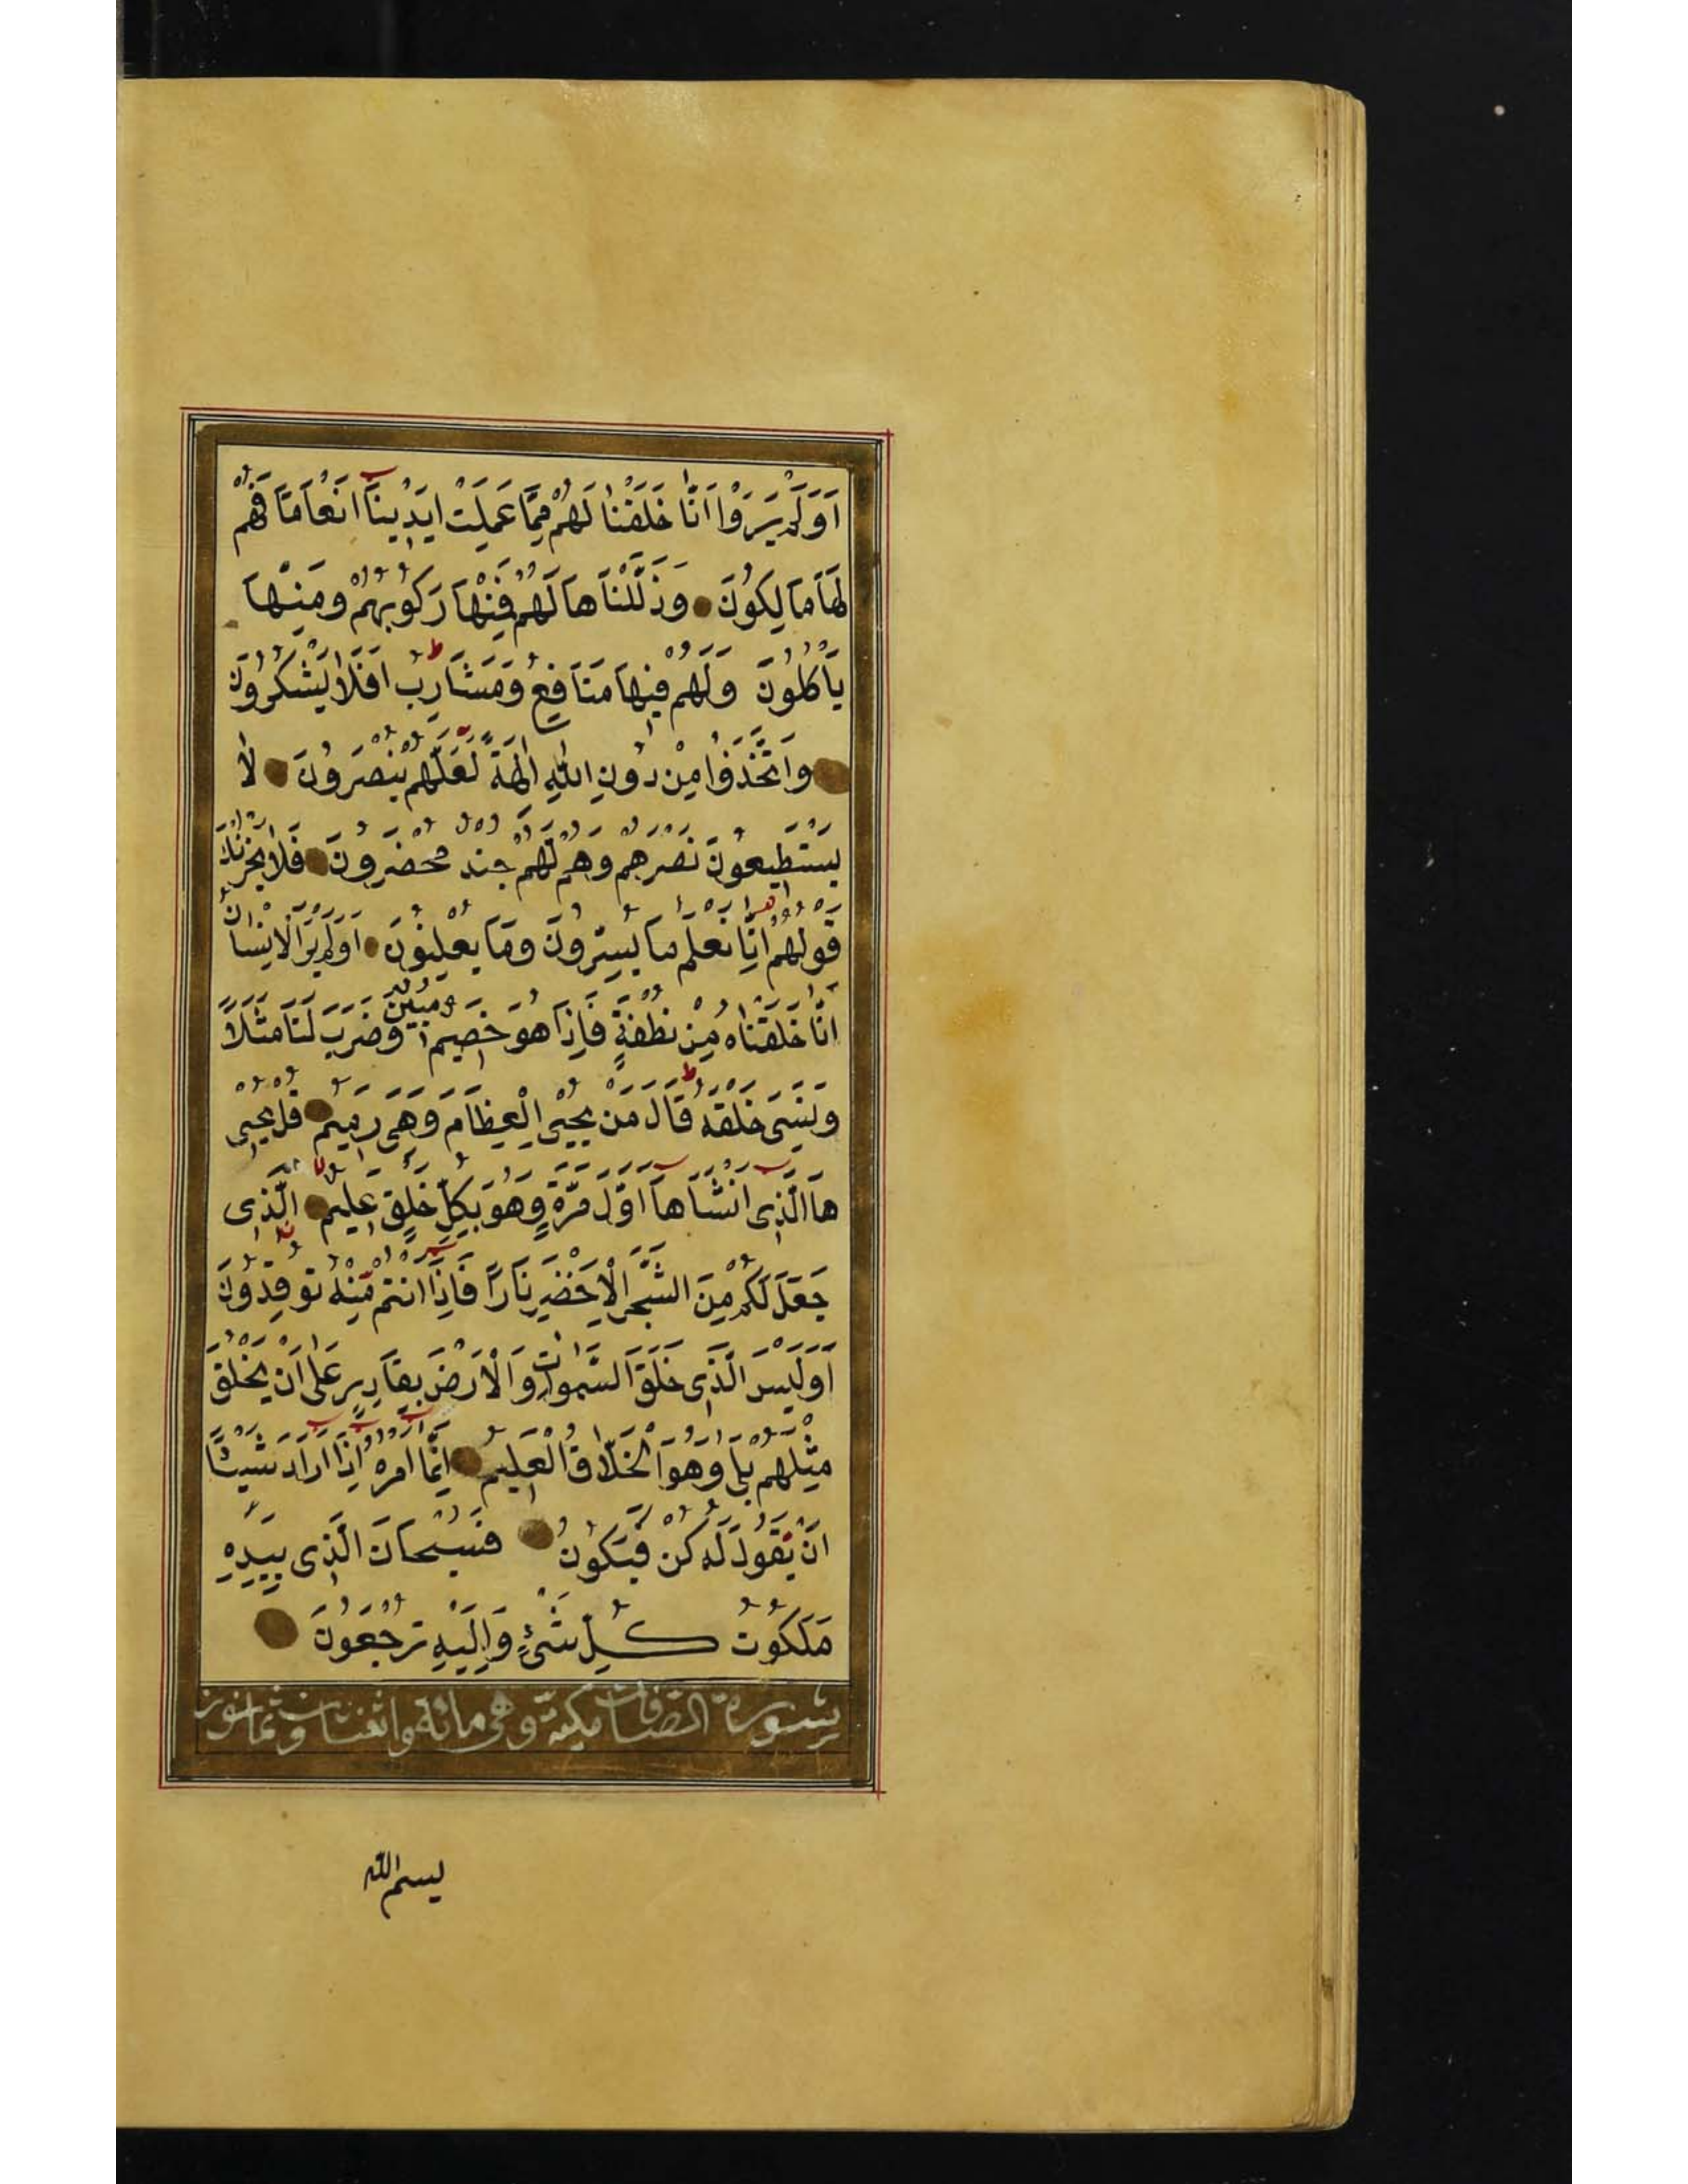 اَوَلَمْ يَرَوْا اَنَّا خَلَقْنٰا لَهُمْ مِمَّا عَمِلَتْ اَيْدِينَآ اَنْعَامًا فَهُمْ
لَهَا مَالِكُونَ وَذَلَّلْنَاهَا لَهُمْ فَمِنْهَا رَكُوبُهُمْ وَمِنْهَا
يَأْكُلُونَ وَلَهُمْ فِيهَا مَنَافِعُ وَمَشَارِبُ اَفَلَا يَشْكُرُونَ
وَاتَّخَذُوا مِنْ دُونِ اللّٰهِ اٰلِهَةً لَعَلَّهُمْ يُنْصَرُونَ لَا
يَسْتَطِيعُونَ نَصْرَهُمْ وَهُمْ لَهُمْ جُنْدٌ مُحْضَرُونَ فَلَا يَحْزُنْكَ
قَوْلُهُمْ اِنَّا نَعْلَمُ مَا يُسِرُّونَ وَمَا يُعْلِنُونَ اَوَلَمْ يَرَ الْاِنْسَانُ
اَنَّا خَلَقْنَاهُ مِنْ نُطْفَةٍ فَاِذَا هُوَ خَصِيمٌ مُبِينٌ وَضَرَبَ لَنَا مَثَلًا
وَنَسِيَ خَلْقَهُ قَالَ مَنْ يُحْيِي الْعِظَامَ وَهِيَ رَمِيمٌ قُلْ يُحْيِي
هَا الَّذِي اَنْشَاَهَآ اَوَّلَ مَرَّةٍ وَهُوَ بِكُلِّ خَلْقٍ عَلِيمٌ الَّذِي
جَعَلَ لَكُمْ مِنَ الشَّجَرِ الْاَخْضَرِ نَارًا فَاِذَآ اَنْتُمْ مِنْهُ تُوقِدُونَ
اَوَلَيْسَ الَّذِي خَلَقَ السَّمٰوَاتِ وَالْاَرْضَ بِقَادِرٍ عَلٰى اَنْ يَخْلُقَ
مِثْلَهُمْ بَلٰى وَهُوَ الْخَلَّاقُ الْعَلِيمُ اِنَّمَآ اَمْرُهُ اِذَآ اَرَادَ شَيْئًا
اَنْ يَقُولَ لَهُ كُنْ فَيَكُونُ فَسُبْحَانَ الَّذِي بِيَدِهِ
مَلَكُوتُ كُلِّ شَيْءٍ وَاِلَيْهِ تُرْجَعُونَ
سورة الصافات مكية وهي مائة واثنتان وثمانون
بسم الله